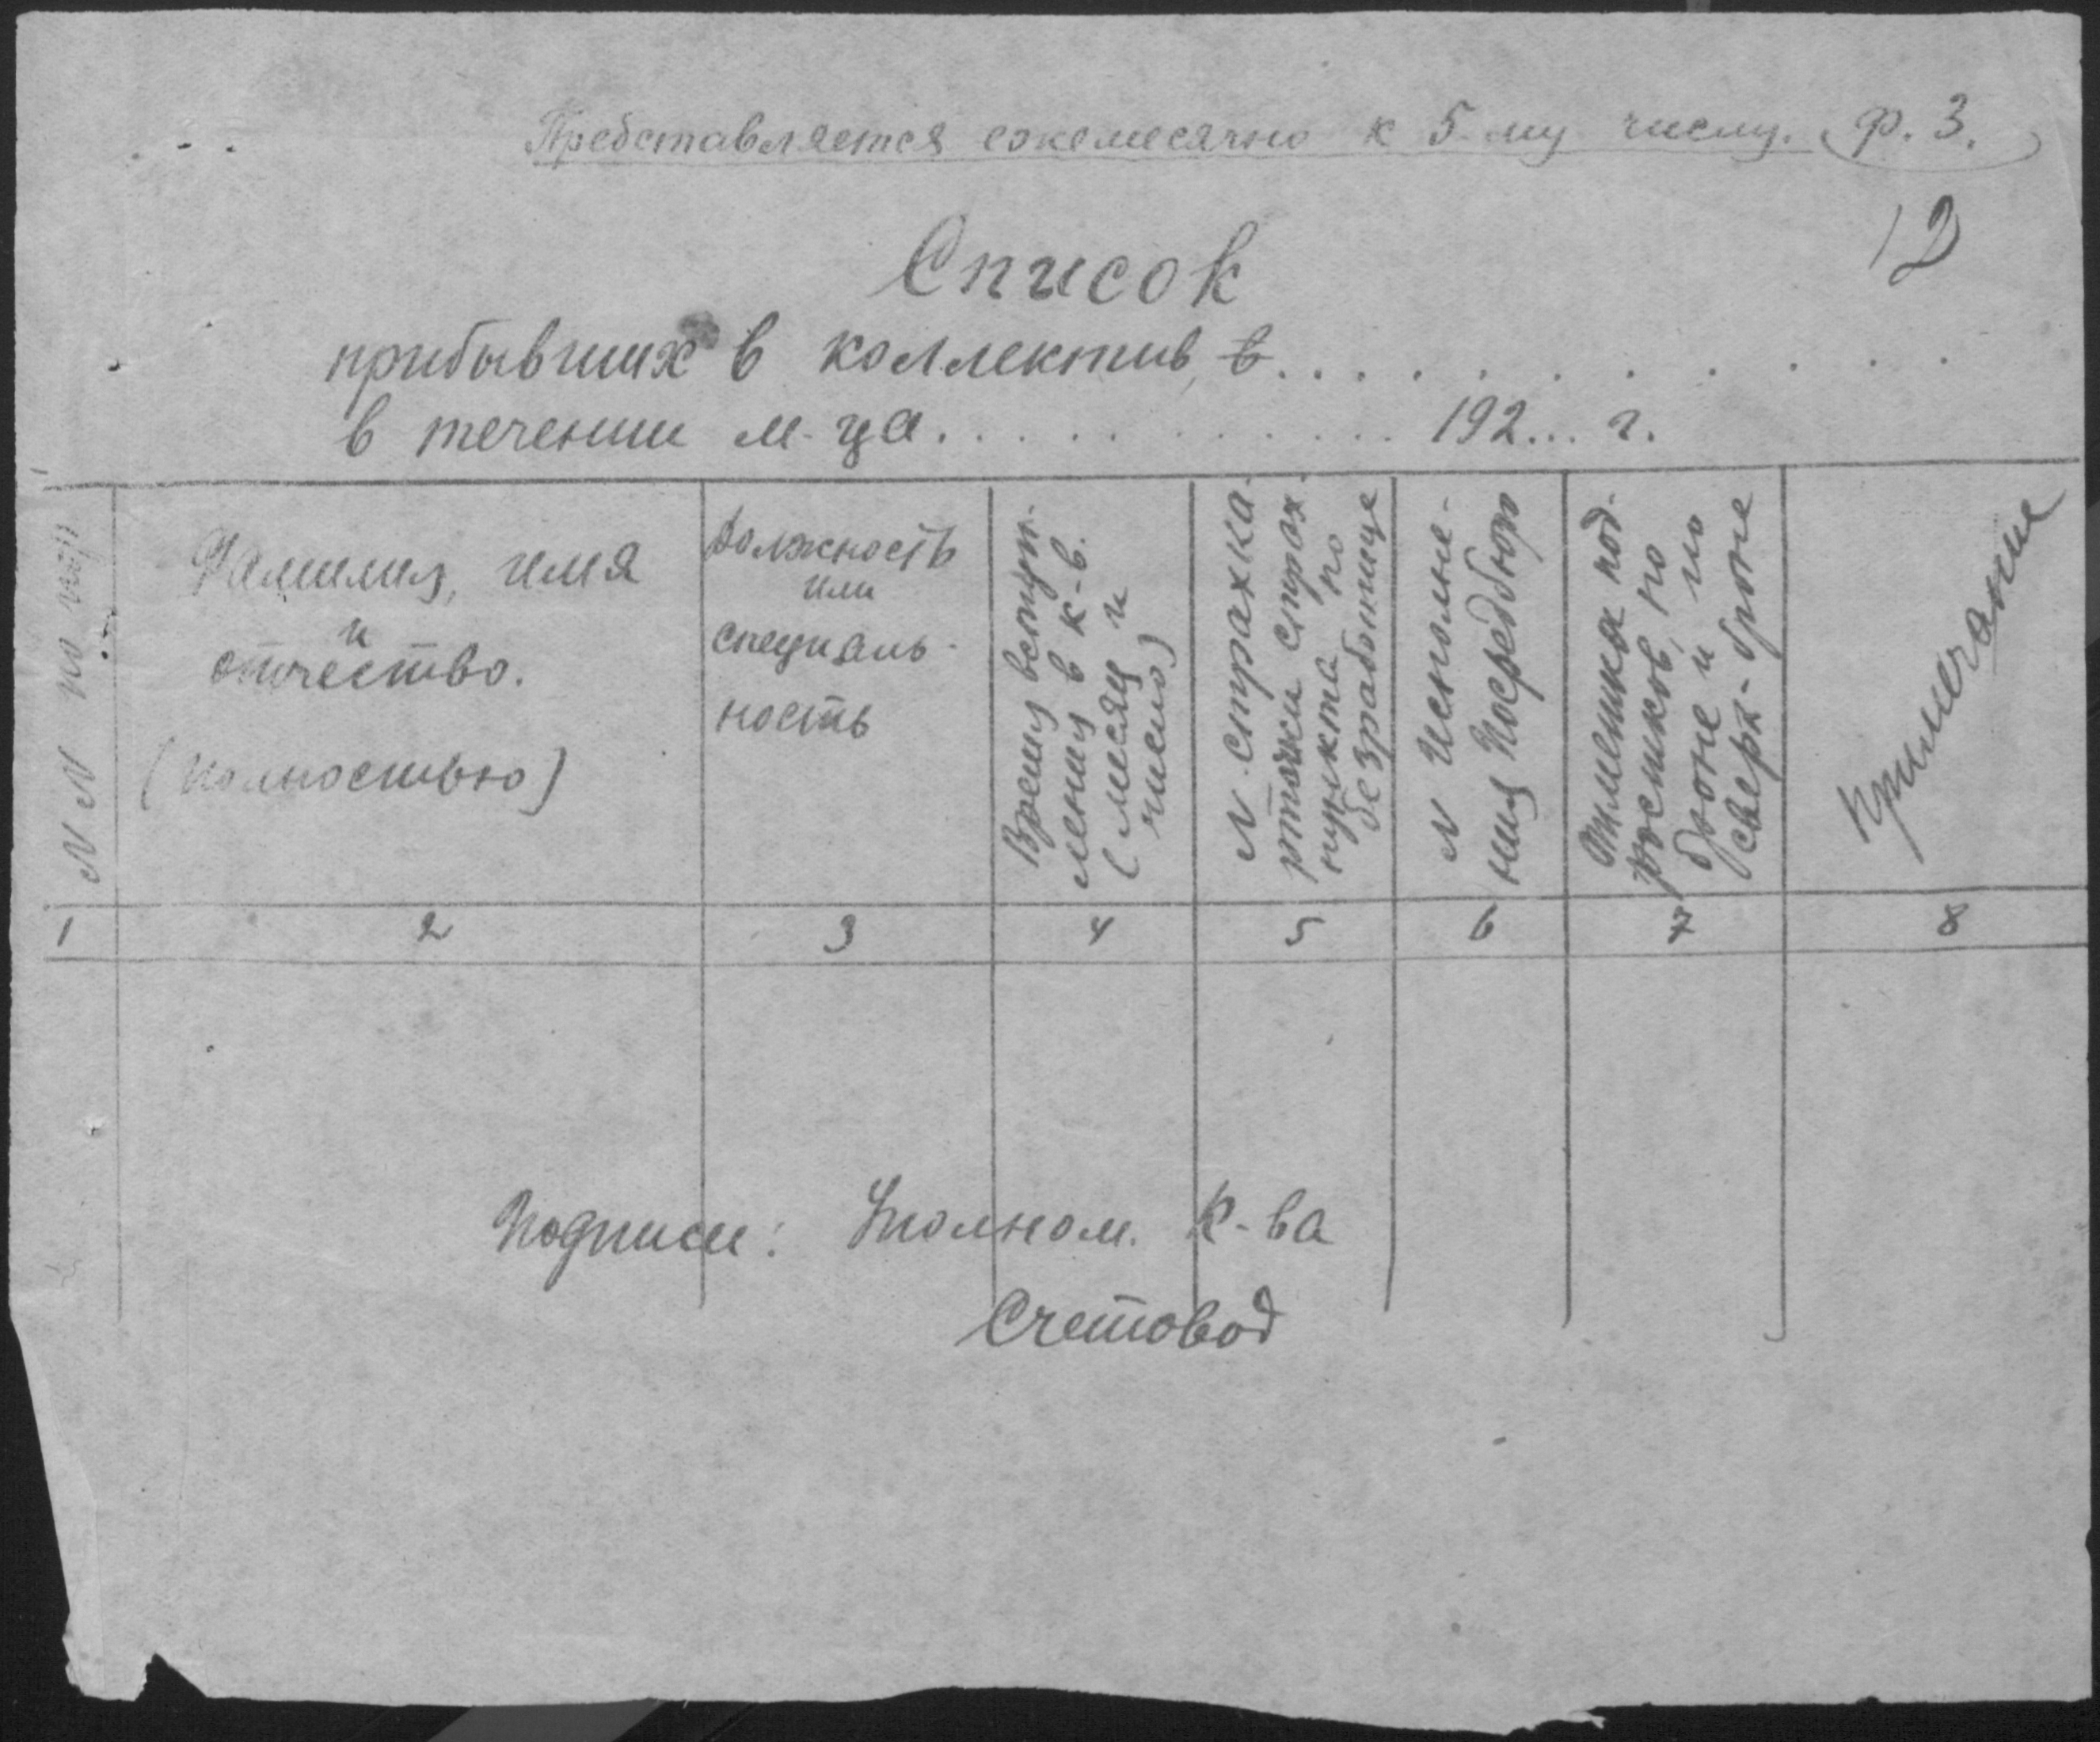 Представляется ежемесячно к 5-му числу. Ф. 3.
12
Список
прибывших в коллектив, в . . . . . . . . . .
в течении м-ца . . . . . . . . . . . . 192... г.
N N по пор
Фамилия, имя
и
отчество.
(полностью)
Должность
или
специаль-
ность
Время вступ-
ления в к-в.
(месяц и
число)
N страхка-
рточки страх-
пункта по
безработице
N Исполне-
ния Посредбюро
Отметка под-
ростков, по
броне и по
сверх-броне
Примечание
1 2 3 4 5 6 7 8
Подписи: Уполном. К-ва
Счетовод